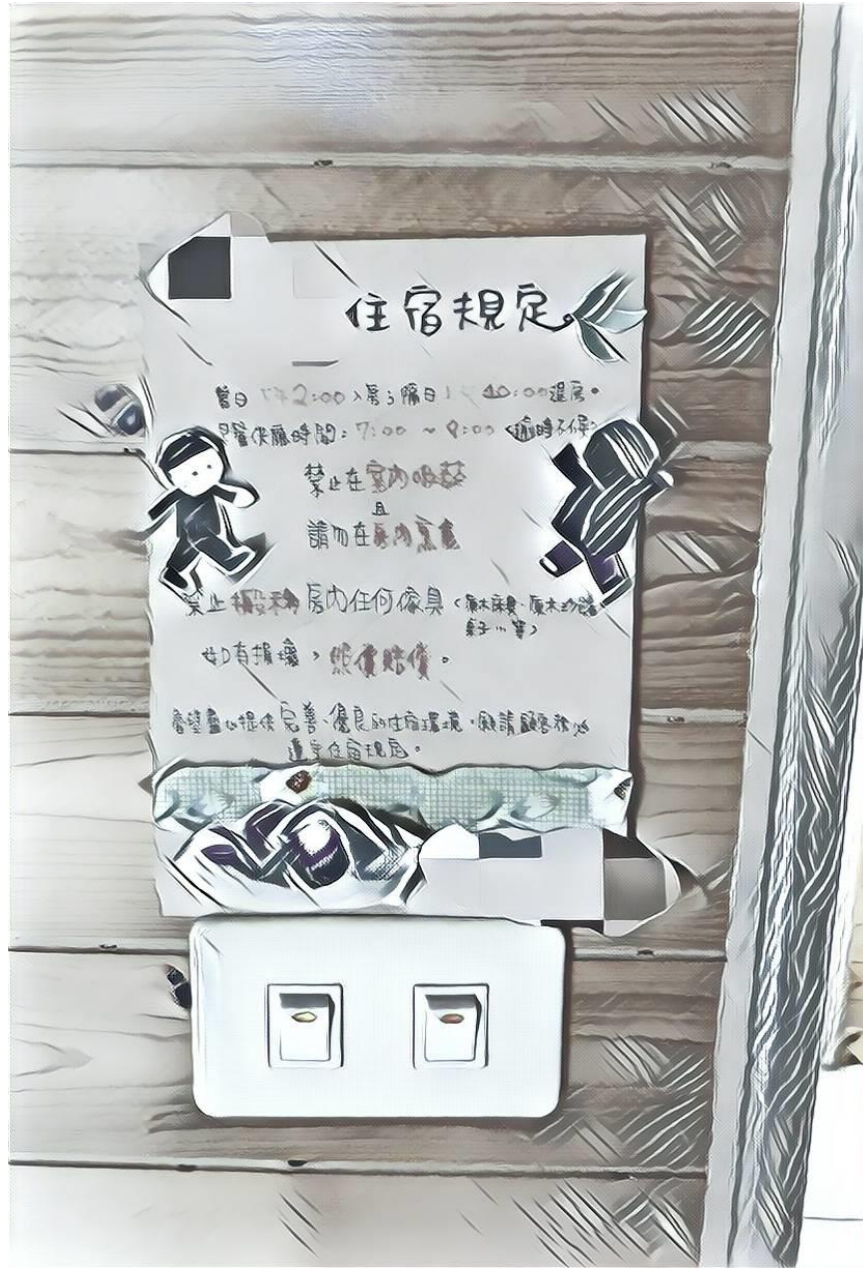 住宿規定
當日 下午2:00入房;隔日上午10:00退房。
早餐供應時間:7:00 ~ 9:00 (逾時不候)
禁止在室內吸菸
且
請勿在房內烹煮
禁止搬移房內任何傢具(原木床具、原木
桌子…等)
如有損壞,照價賠償。
希望盡心提供完善、優良的住宿環境,願請顧客務必
遵守住宿規定。